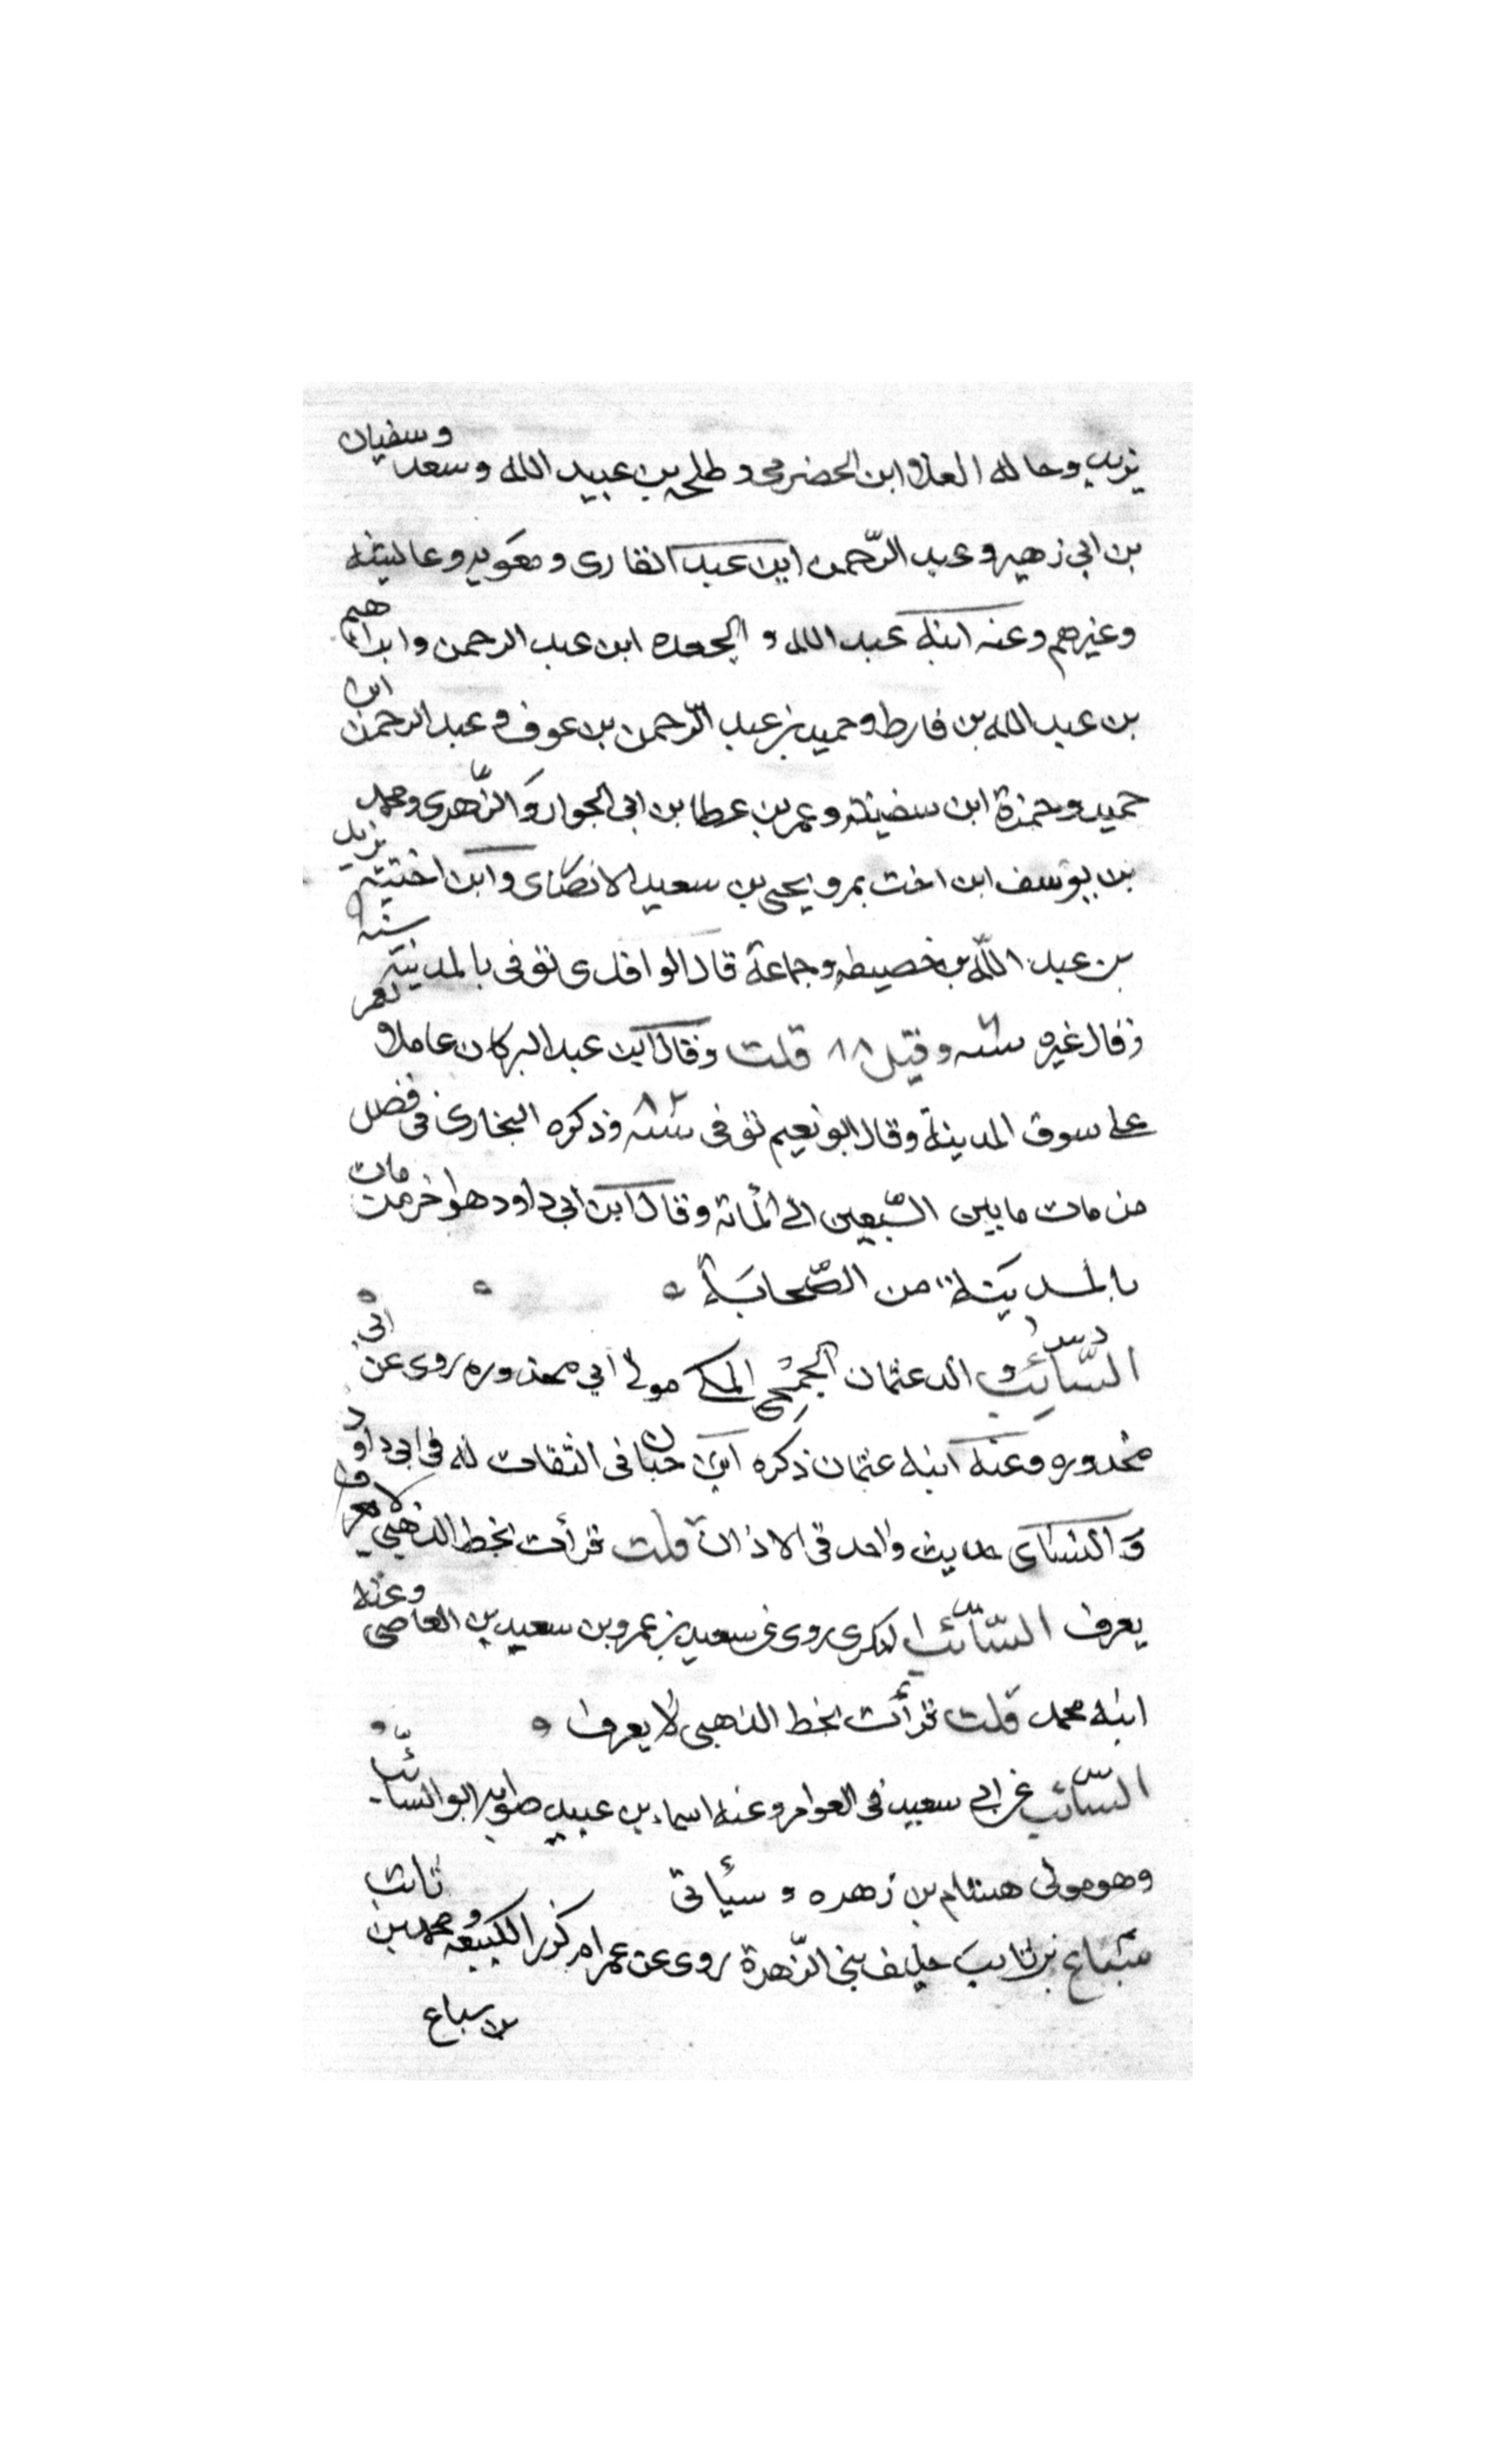 يزيد وخاله العلاء ابن الحضرمي وطلحه بن عبيد الله وسعد وسفيان
بن ابي زهير وعبد الرحمن ابن عبد القاري ومعويه وعائشه
وغيرهم وعنه ابنه عبد الله والجعده ابن عبد الرحمن وابراهيم
بن عبد الله بن قارط وحميد بن عبد الرحمن بن عوف وعبد الرحمن ابن
حميد وحمزة ابن سفينة وعمر بن عطا بن ابي الجوار والزهري ومحمد
بن يوسف ابن اخت نمر ويحيى بن سعيد الانصاري وابن اخته يزيد
بن عبد الله بن خصيفه وجماعة قال الواقدي توفى بالمدينة سنه
وقال غيره سنه وقيل ٨٨ قلت وقال ابن عبد البر كان عاملا
على سوق المدينة وقال ابو نعيم توفى سنه ٨٢ وذكره البخاري في فضل
من مات ما بين السبعين الى المائة وقال ابن ابي داود هو اخر من مات
بالمدينة من الصحابة
د س السائب والد عثمان الجمحي المكي مولى ابي محذوره روى عن ابي
محذوره وعنه ابنه عثمان ذكره ابن حبان في الثقات له في ابي داود
والنسائ حديث واحد في الاذان قلت قرأت بخط الذهبي لا يعرف
يعرف السائب النكري روى عن سعيد بن عمرو بن سعيد بن العاصي وعنه
ابنه محمد قلت قرأت بخط الذهبي لا يعرف
س السائب عن ابي سعيد في العوامر وعنه اسماء بن عبيد صوابه ابو السائب
وهو مولى هشام بن زهره وسيأتي
سباع بن ثابت حليف بني الزهرة روى عن عمر وام كرز الكعبيه ومحمد بن ثابت
بن سباع